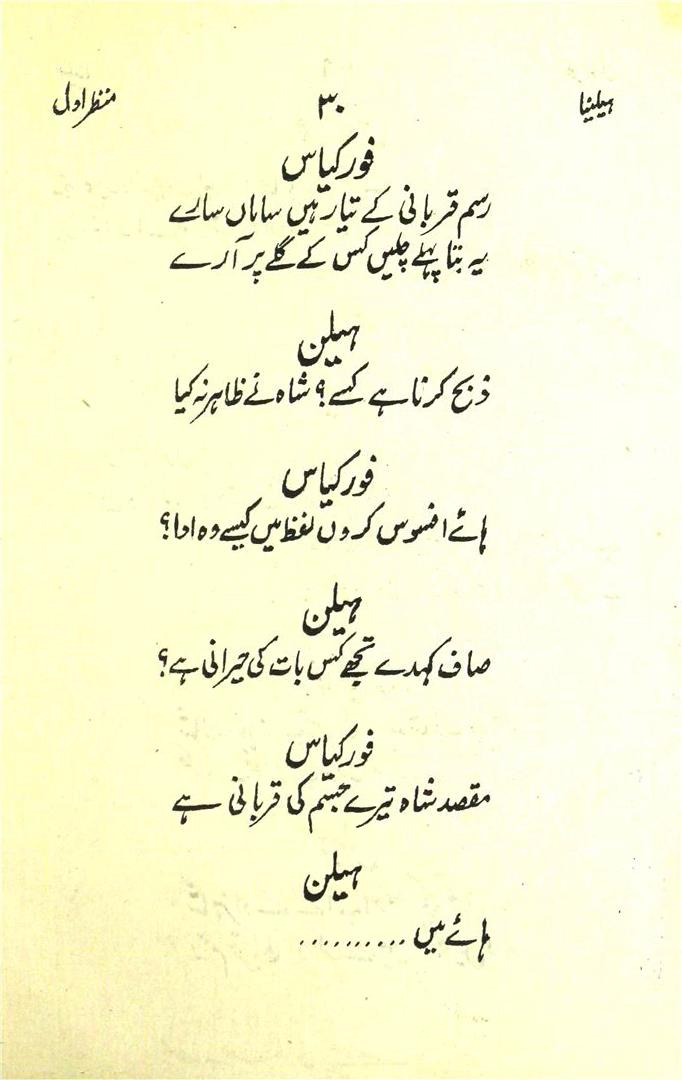 ہیلینا ۳۰ منظر اول
فورکیاس
رسم قربانی کے تیار ہیں ساماں سارے
یہ بتا پہلے چلیں کس کے گلے پر آرے
ہیلن
ذبح کرنا ہے کسے؟ شاہ نے ظاہر نہ کیا
فورکیاس
ہائے افسوس کروں لفظ میں کیسے وہ ادا؟
ہیلن
صاف کہدے تجھے کس بات کی حیرانی ہے؟
فورکیاس
مقصد شاہ تیرے جسم کی قربانی ہے
ہیلن
ہائے میں ..........